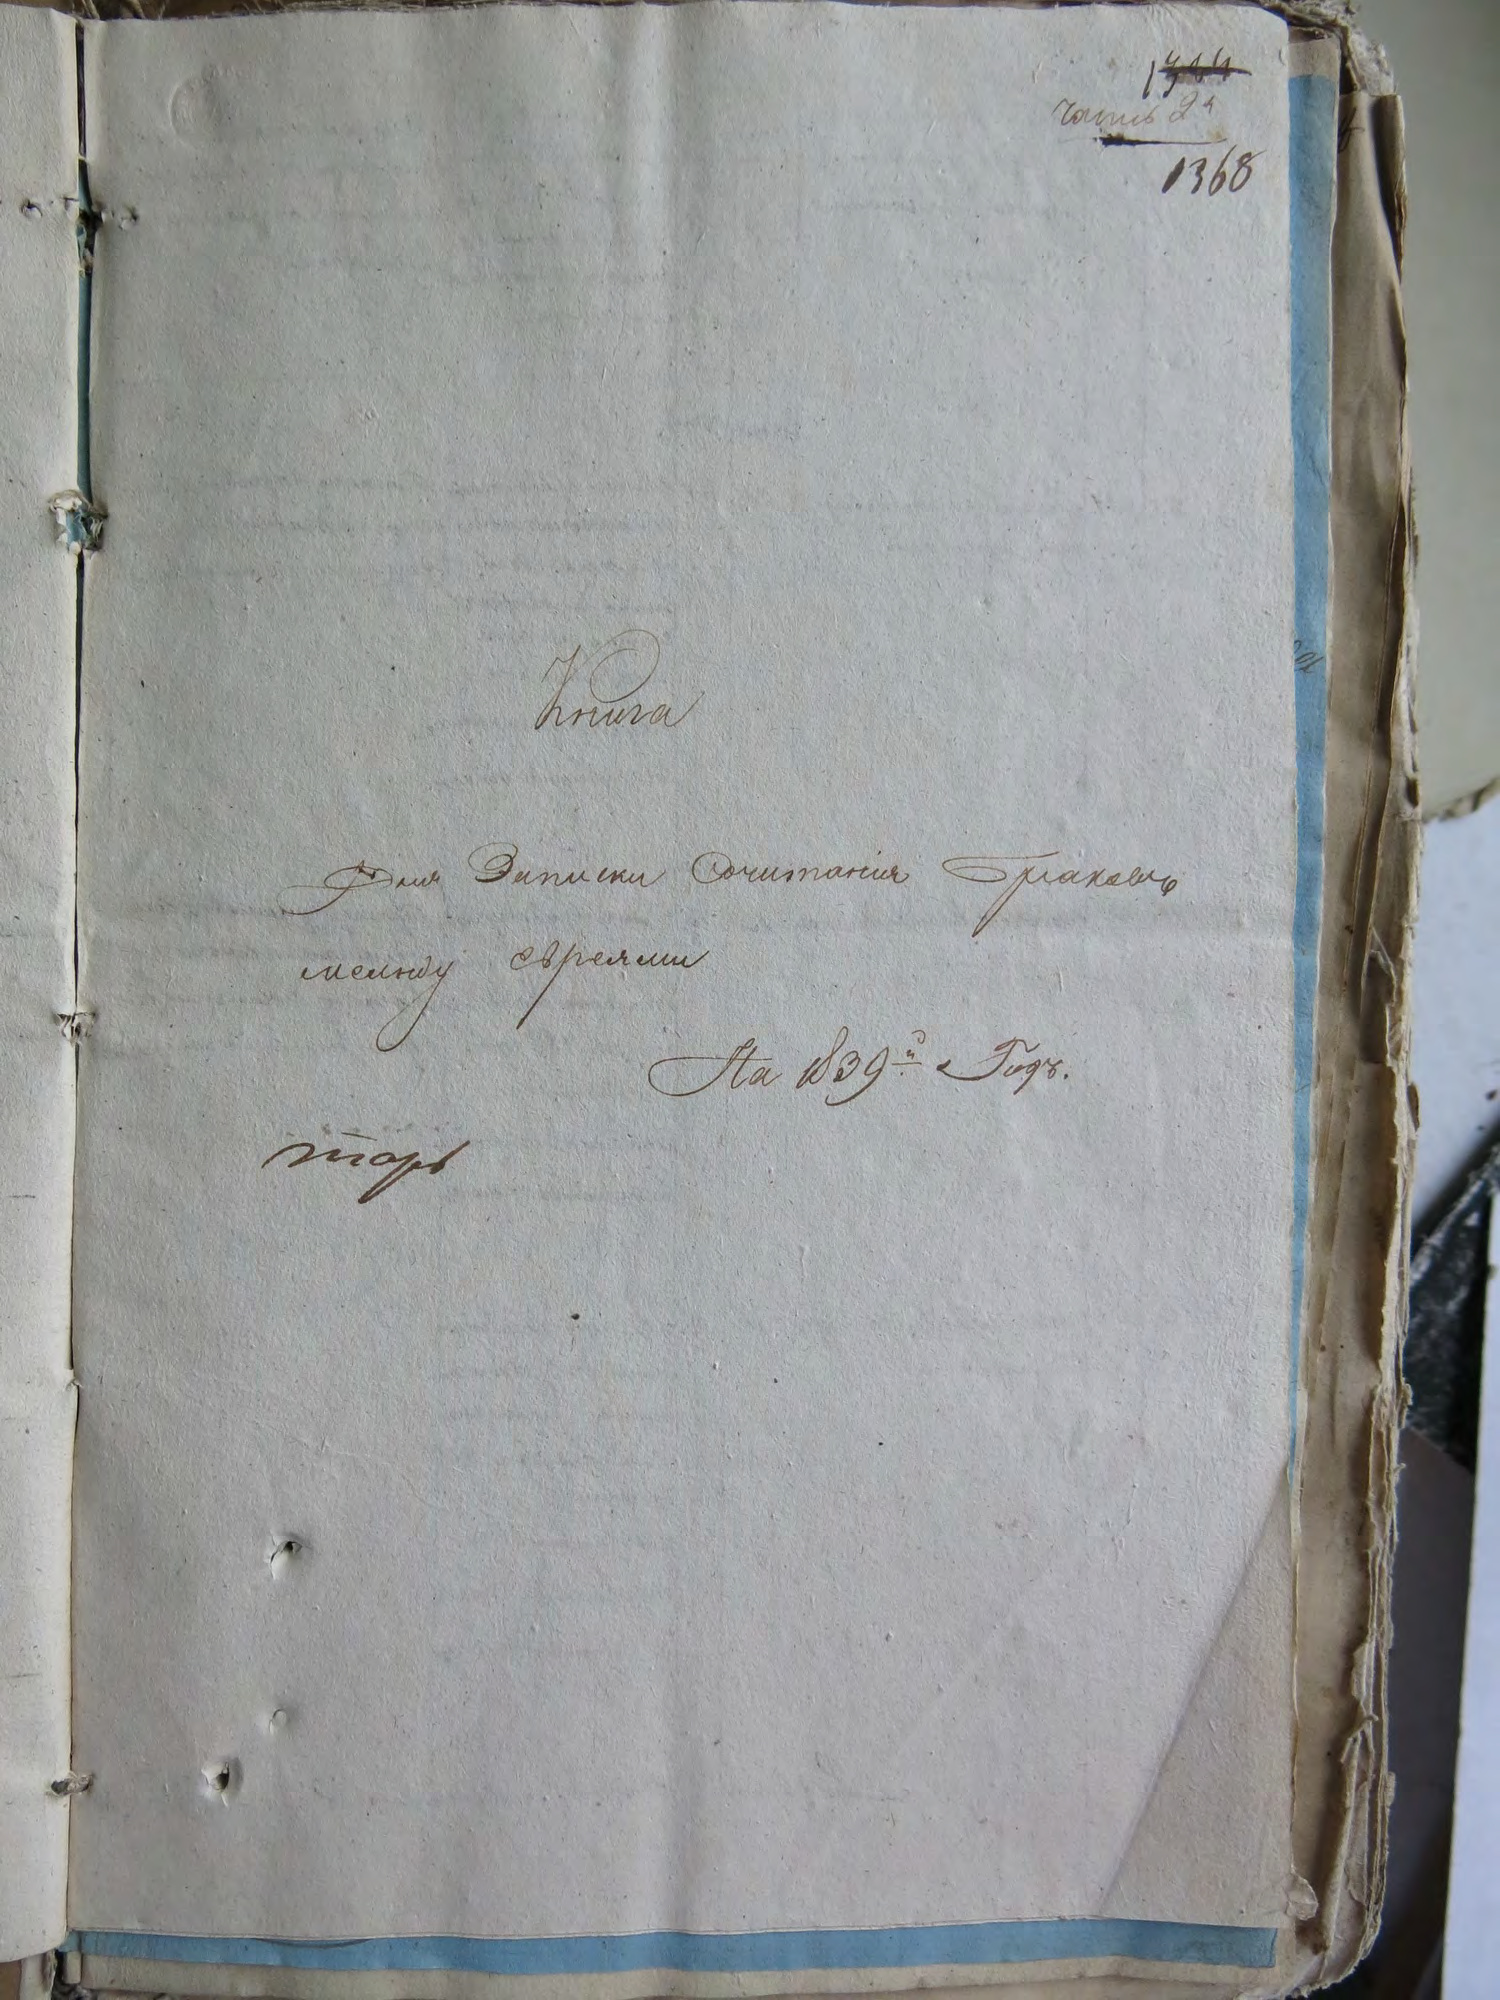 часть 2я
1368
Книга
Для Записки Сочитанія Браковъ
между евреями
На 1839й Годъ.